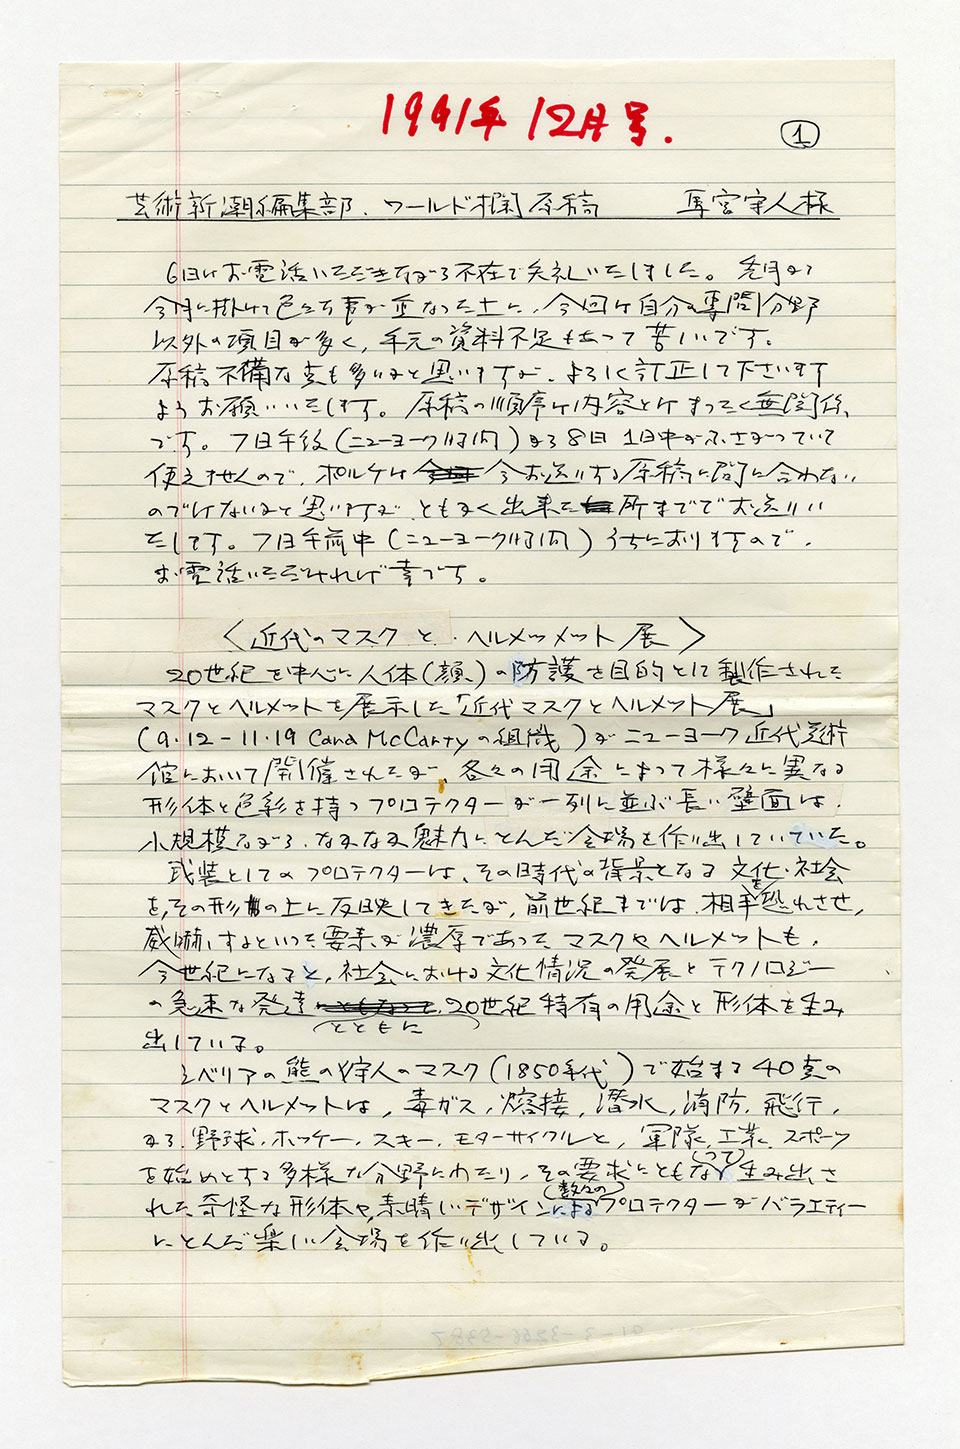 1991年12月号.
1
芸術新潮編集部、ワールド欄原稿 馬宮守人様
6日はお電話いただきながら不在で失礼いたしました。先月から
今月に掛けて色々な事が重なった上に、今回は自分の専門分野
以外の項目が多く、手元の資料不足もあって苦しいです。
原稿不備な点も多いかと思いますが、よろしく訂正して下さいます
ようお願いいたします。原稿の順序は内容とはまったく無関係
です。7日午後(ニューヨーク時間)から8日1日中がふさがっていて
使えませんので、ポルケは今お送りする原稿に間に合わない
のではないかと思いますが、ともかく出来た所までお送りい
たします。7日午前中(ニューヨーク時間)うちにおりますので、
お電話いただければ幸です。
〈近代のマスクと・ヘルメッメット展〉
20世紀を中心に人体(顔)の防護を目的として製作された
マスクとヘルメットを展示した「近代マスクとヘルメット展」
(9.12-11.19 Cara McCartyの組織)がニューヨーク近代美術
館において開催されたが、各々の用途によって様々に異なる
形体と色彩を持つプロテクターが一列に並ぶ長い壁面は、
小規模ながら、なかなか魅力にとんだ会場を作り出していていた。
武装としてのプロテクターは、その時代の背景となる文化・社会
を、その形の上に反映してきたが、前世紀までは、相手を恐れさせ、
威嚇するといった要素が濃厚であったマスクやヘルメットも、
今世紀になると、社会における文化情況の発展とテクノロジー
の急速な発達とともに20世紀特有の用途と形体を生み
出している。
シベリアの熊の狩人のマスク(1850年代)で始まる40点の
マスクとヘルメットは、毒ガス、熔接、潜水、消防、飛行、
から、野球、ホッケー、スキー、モターサイクルと、軍隊、工業、スポーツ
を始めとする多様な分野にわたり、その要求にともなって生み出さ
れた奇怪な形体や、素晴しいデザインによる数々のプロテクターがバラエティー
にとんだ楽しい会場を作り出している。